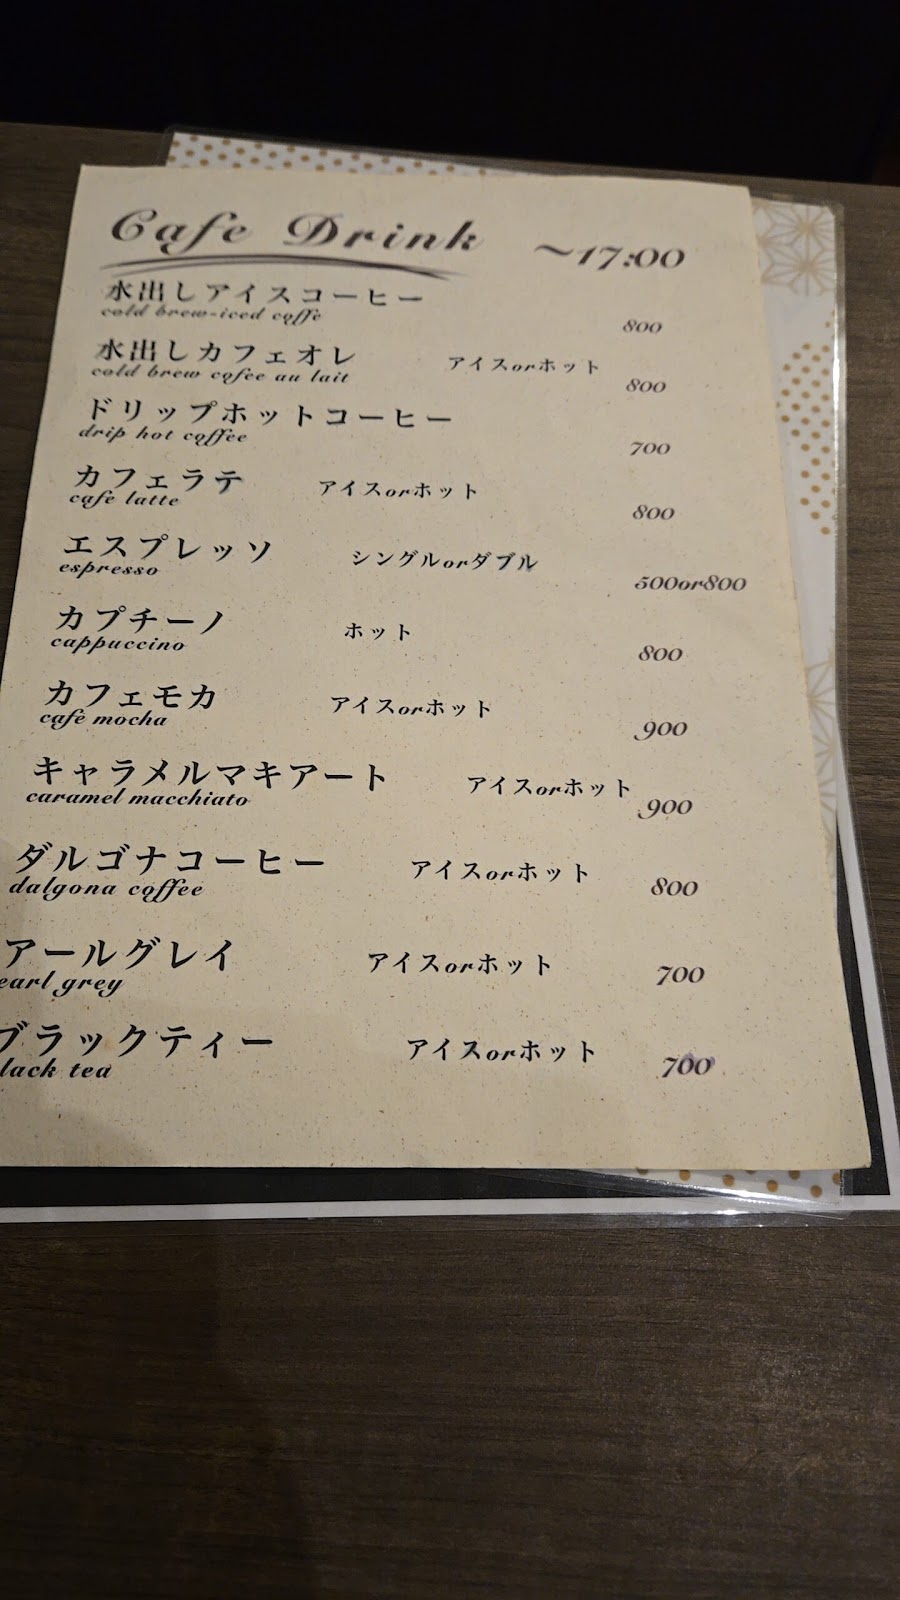 Cafe Drink ～17:00
水出しアイスコーヒー
cold brew-iced coffe 800
水出しカフェオレ アイスorホット
cold brew cofee au lait 800
ドリップホットコーヒー
drip hot coffee 700
カフェラテ アイスorホット
cafe latte 800
エスプレッソ シングルorダブル
espresso 500or800
カプチーノ ホット
cappuccino 800
カフェモカ アイスorホット
cafe mocha 900
キャラメルマキアート アイスorホット
caramel macchiato 900
ダルゴナコーヒー アイスorホット
dalgona coffee 800
アールグレイ アイスorホット
earl grey 700
ブラックティー アイスorホット
lack tea 700